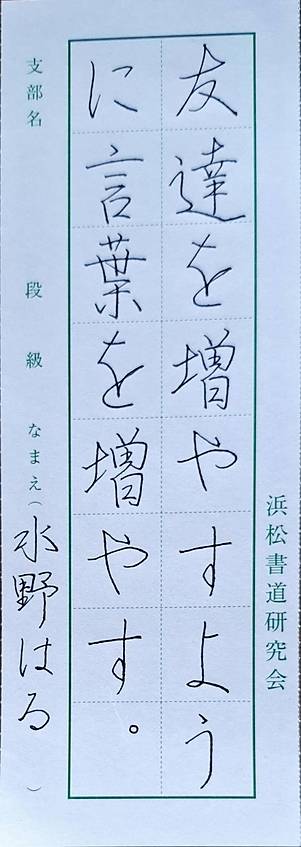 浜松書道研究会
友達を増やすよう
に言葉を増やす。
支部名 段 級 なまえ（水野はる）